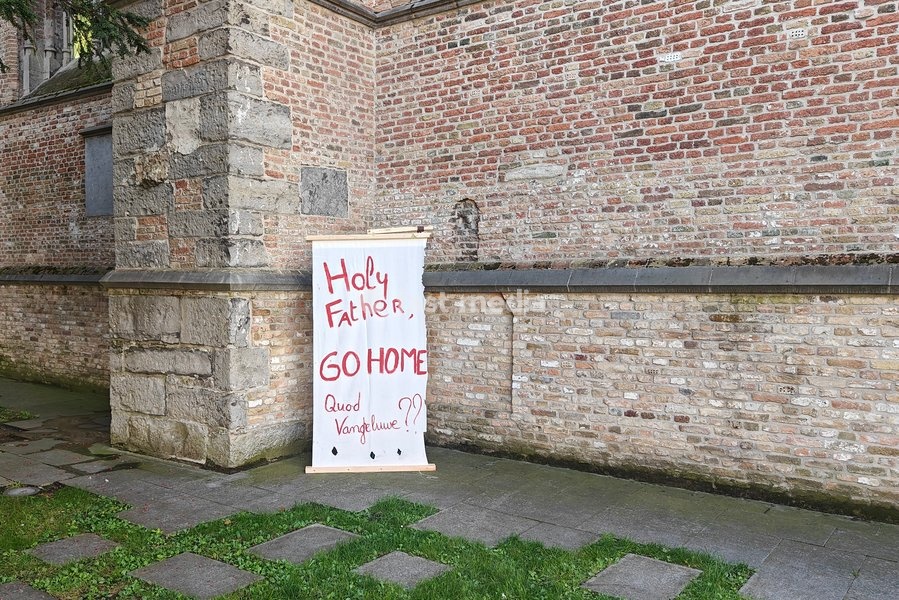 Holy
Father,
GO HOME
Quod
Vangeluwe ??
st-media